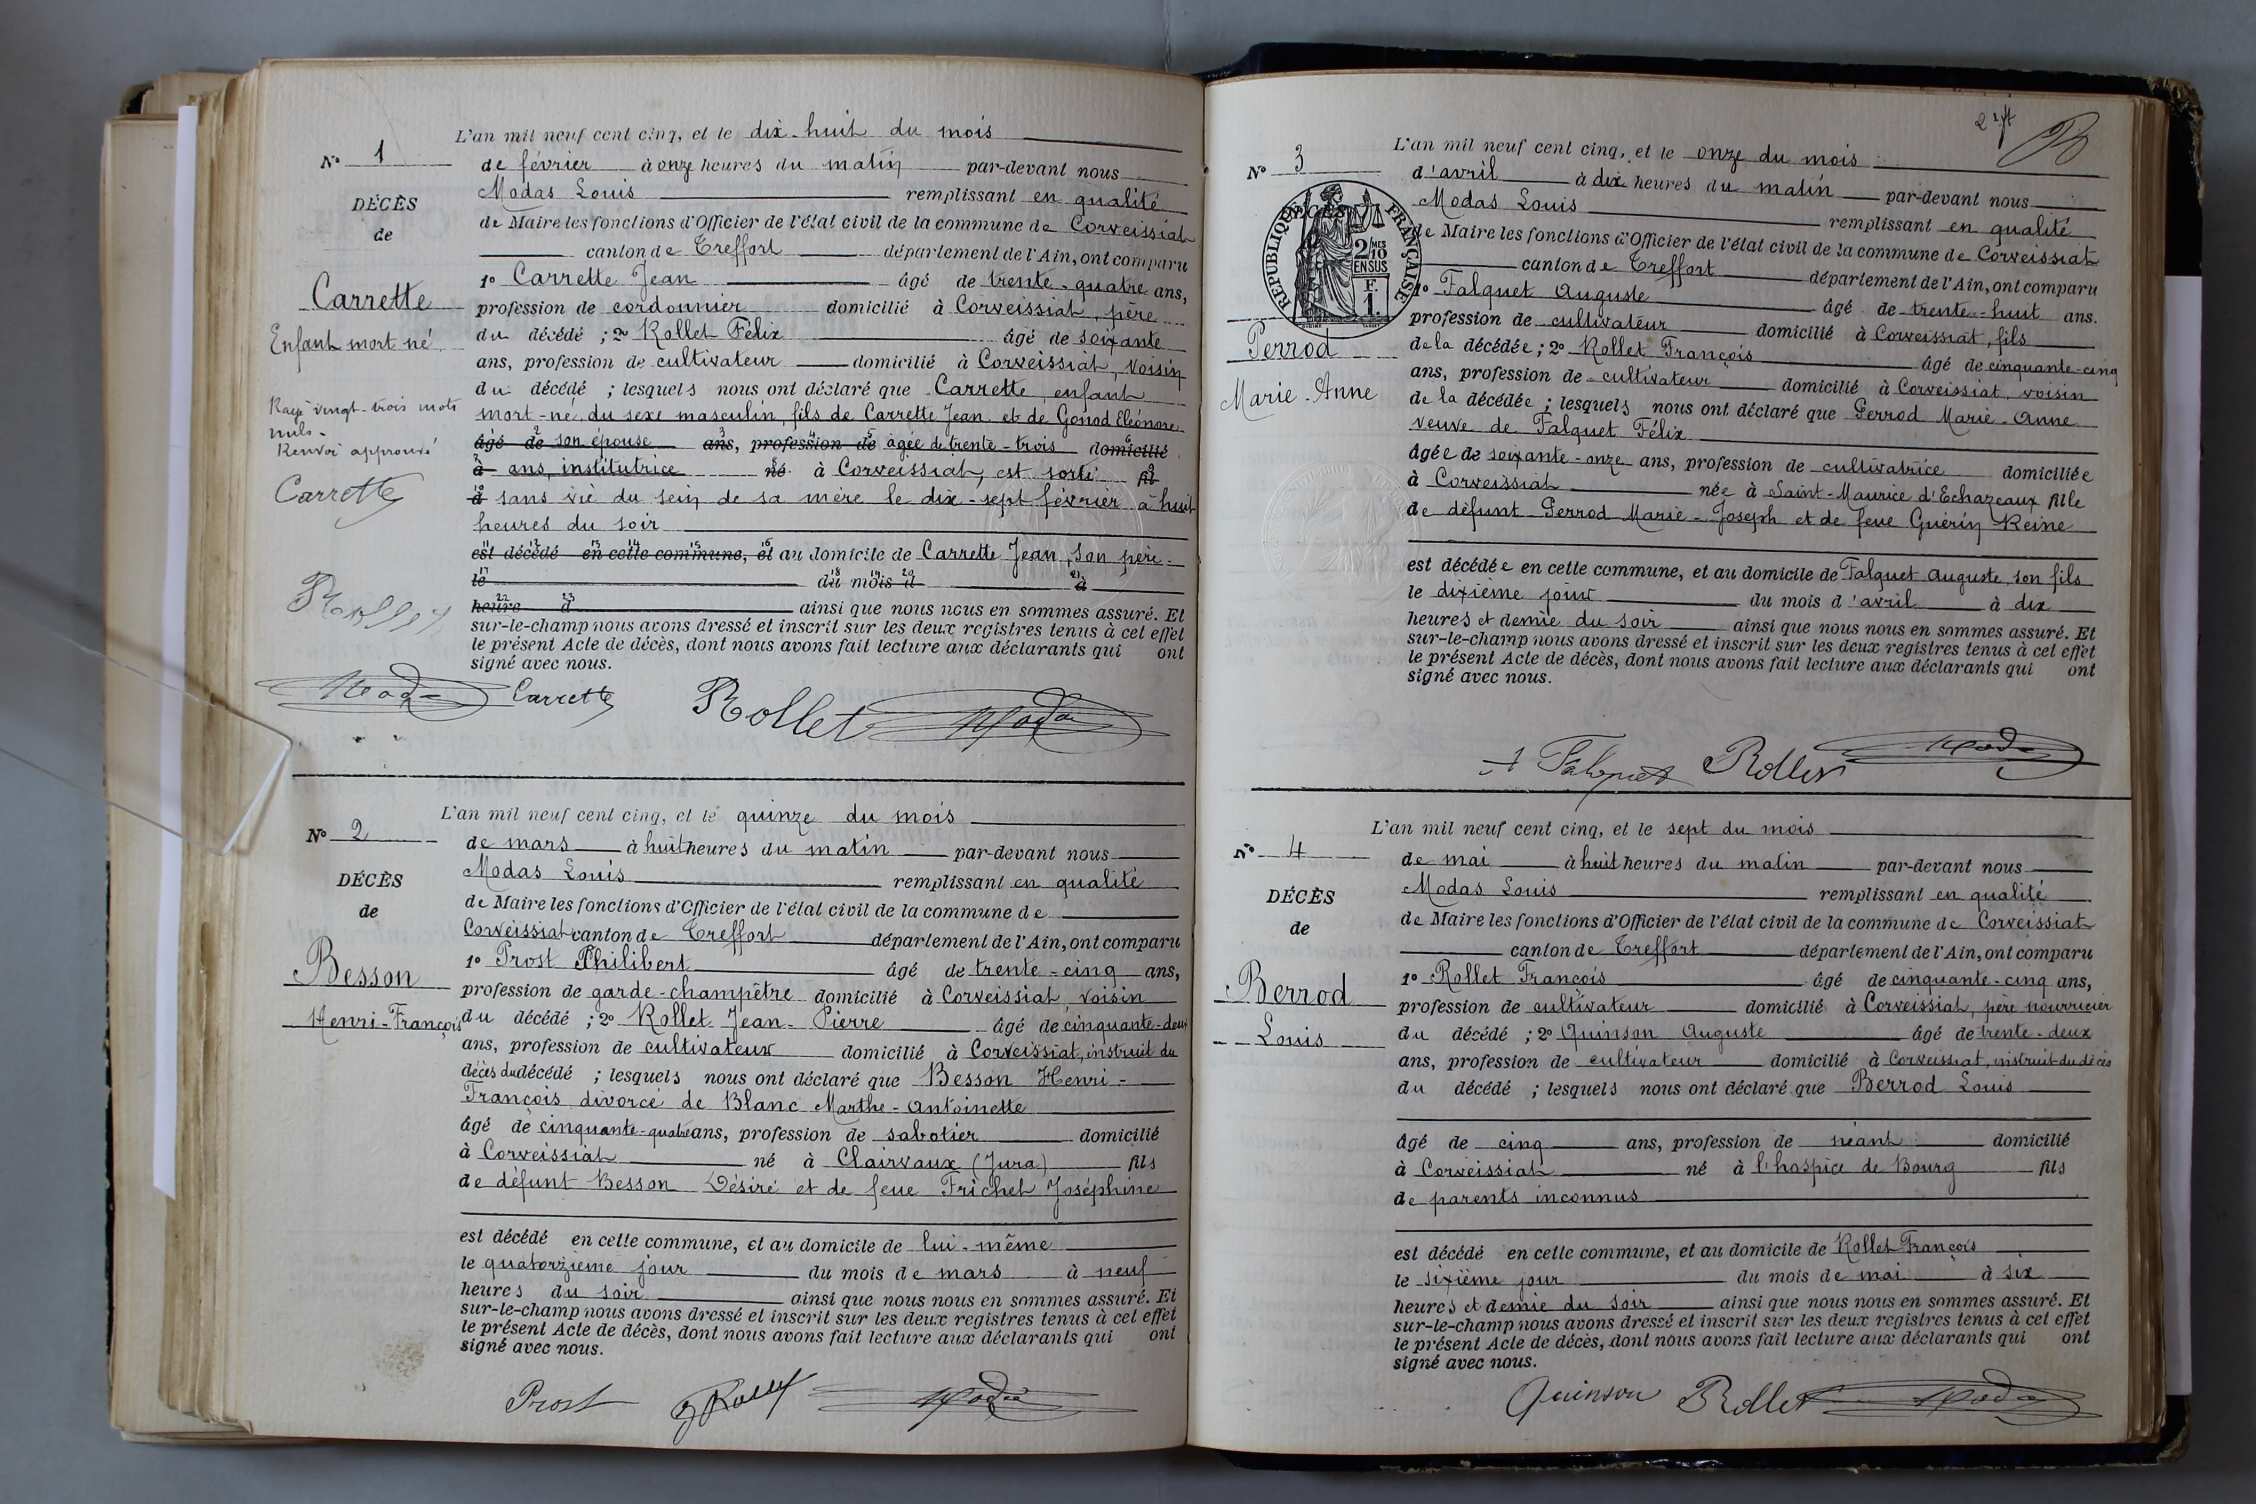 L'an mil neuf cent cinq, et le dix-huit du mois
N° 1
de février à onze heures du matin par-devant nous
Modas Louis remplissant en qualité
DÉCÈS
de Maire les fonctions d'Officier de l'état civil de la commune de Corveissiat
de
canton de Treffort département de l'Ain, ont comparu
1° Carrette Jean âgé de trente-quatre ans,
Carrette
profession de cordonnier domicilié à Corveissiat, père
Enfant mort né
du décédé ; 2° Rollet Félix âgé de soixante
ans, profession de cultivateur domicilié à Corveissiat, voisin
du décédé ; lesquels nous ont déclaré que Carrette, enfant
Rayé vingt-trois mots
nuls.
Renvoi approuvé
Carrette
mort-né du sexe masculin, fils de Carrette Jean et de Gonod Eléonore
âgé de son épouse ans, profession de âgée de trente-trois domicilié
à ans, institutrice né à Corveissiat, est sorti fil
d sans vie du sein de sa mère le dix-sept février à huit
heures du soir
est décédé en cette commune, et au domicile de Carrette Jean, son père.
le du mois d à
Rollet
heure d ainsi que nous nous en sommes assuré. Et
sur-le-champ nous avons dressé et inscrit sur les deux registres tenus à cet effet
le présent Acte de décès, dont nous avons fait lecture aux déclarants qui ont
signé avec nous.
Modas Carrette Rollet Modas
L'an mil neuf cent cinq, et le quinze du mois
N° 2
de mars à huit heures du matin par-devant nous
Modas Louis remplissant en qualité
DÉCÈS
de Maire les fonctions d'Officier de l'état civil de la commune de
de
Corveissiat canton de Treffort département de l'Ain, ont comparu
1° Prost Philibert âgé de trente-cinq ans,
Besson
profession de garde-champêtre domicilié à Corveissiat, voisin
Henri-François
du décédé ; 2° Rollet Jean-Pierre âgé de cinquante-deux
ans, profession de cultivateur domicilié à Corveissiat, instruit du
décès du décédé ; lesquels nous ont déclaré que Besson Henri-
François divorcé de Blanc Marthe-Antoinette
âgé de cinquante-quatre ans, profession de sabotier domicilié
à Corveissiat né à Clairvaux (Jura) fils
de défunt Besson Désiré et de feue Frichet Joséphine
est décédé en cette commune, et au domicile de lui-même
le quatorzième jour du mois de mars à neuf
heures du soir ainsi que nous nous en sommes assuré. Et
sur-le-champ nous avons dressé et inscrit sur les deux registres tenus à cet effet
le présent Acte de décès, dont nous avons fait lecture aux déclarants qui ont
signé avec nous.
Prost Rollet Modas
L'an mil neuf cent cinq, et le onze du mois
N° 3
d'avril à dix heures du matin par-devant nous
Modas Louis remplissant en qualité
RÉPUBLIQUE FRANÇAISE
2/10 MES
EN SUS
F.
1.
de Maire les fonctions d'Officier de l'état civil de la commune de Corveissiat
canton de Treffort département de l'Ain, ont comparu
1° Falquet Auguste âgé de trente-huit ans.
profession de cultivateur domicilié à Corveissiat, fils
Perrod
de la décédée ; 2° Rollet François âgé de cinquante-cinq
Marie-Anne
ans, profession de cultivateur domicilié à Corveissiat, voisin
de la décédée ; lesquels nous ont déclaré que Perrod Marie-Anne
veuve de Falquet Félix
âgée de soixante-onze ans, profession de cultivatrice domiciliée
à Corveissiat née à Saint-Maurice d'Echazeaux fille
de défunt Perrod Marie-Joseph et de feue Guérin Reine
est décédée en cette commune, et au domicile de Falquet Auguste, son fils
le dixième jour du mois d'avril à dix
heures et demie du soir ainsi que nous nous en sommes assuré. Et
sur-le-champ nous avons dressé et inscrit sur les deux registres tenus à cet effet
le présent Acte de décès, dont nous avons fait lecture aux déclarants qui ont
signé avec nous.
A Falquet Rollet Modas
L'an mil neuf cent cinq, et le sept du mois
N° 4
de mai à huit heures du matin par-devant nous
Modas Louis remplissant en qualité
DÉCÈS
de Maire les fonctions d'Officier de l'état civil de la commune de Corveissiat
de
canton de Treffort département de l'Ain, ont comparu
1° Rollet François âgé de cinquante-cinq ans,
Berrod
profession de cultivateur domicilié à Corveissiat, père nourricier
Louis
du décédé ; 2° Quinson Auguste âgé de trente-deux
ans, profession de cultivateur domicilié à Corveissiat, instruit du décès
du décédé ; lesquels nous ont déclaré que Berrod Louis
âgé de cinq ans, profession de néant domicilié
à Corveissiat né à l'hospice de Bourg fils
de parents inconnus
est décédé en cette commune, et au domicile de Rollet François
le sixième jour du mois de mai à six
heures et demie du soir ainsi que nous nous en sommes assuré. Et
sur-le-champ nous avons dressé et inscrit sur les deux registres tenus à cet effet
le présent Acte de décès, dont nous avons fait lecture aux déclarants qui ont
signé avec nous.
Quinson Rollet Modas